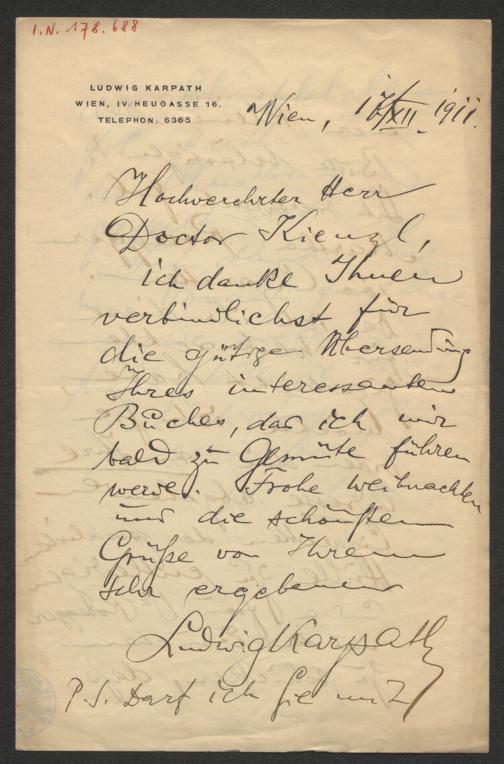 I.N. 178.688
LUDWIG KARPATH
WIEN, IV. HEUGASSE 16.
TELEPHON: 6365
Wien, 17/XII. 1911.
Hochverehrter Herr
Doctor Kienzl,
ich danke Ihnen
verbindlichst für
die gütige Übersendung
Ihres interessanten
Buches, das ich mir
bald zu Gemüte führen
werde. Frohe Weihnachten
und die schönsten
Grüße von Ihrem
sehr ergebenen
Ludwig Karpath
P.S. Darf ich Sie um